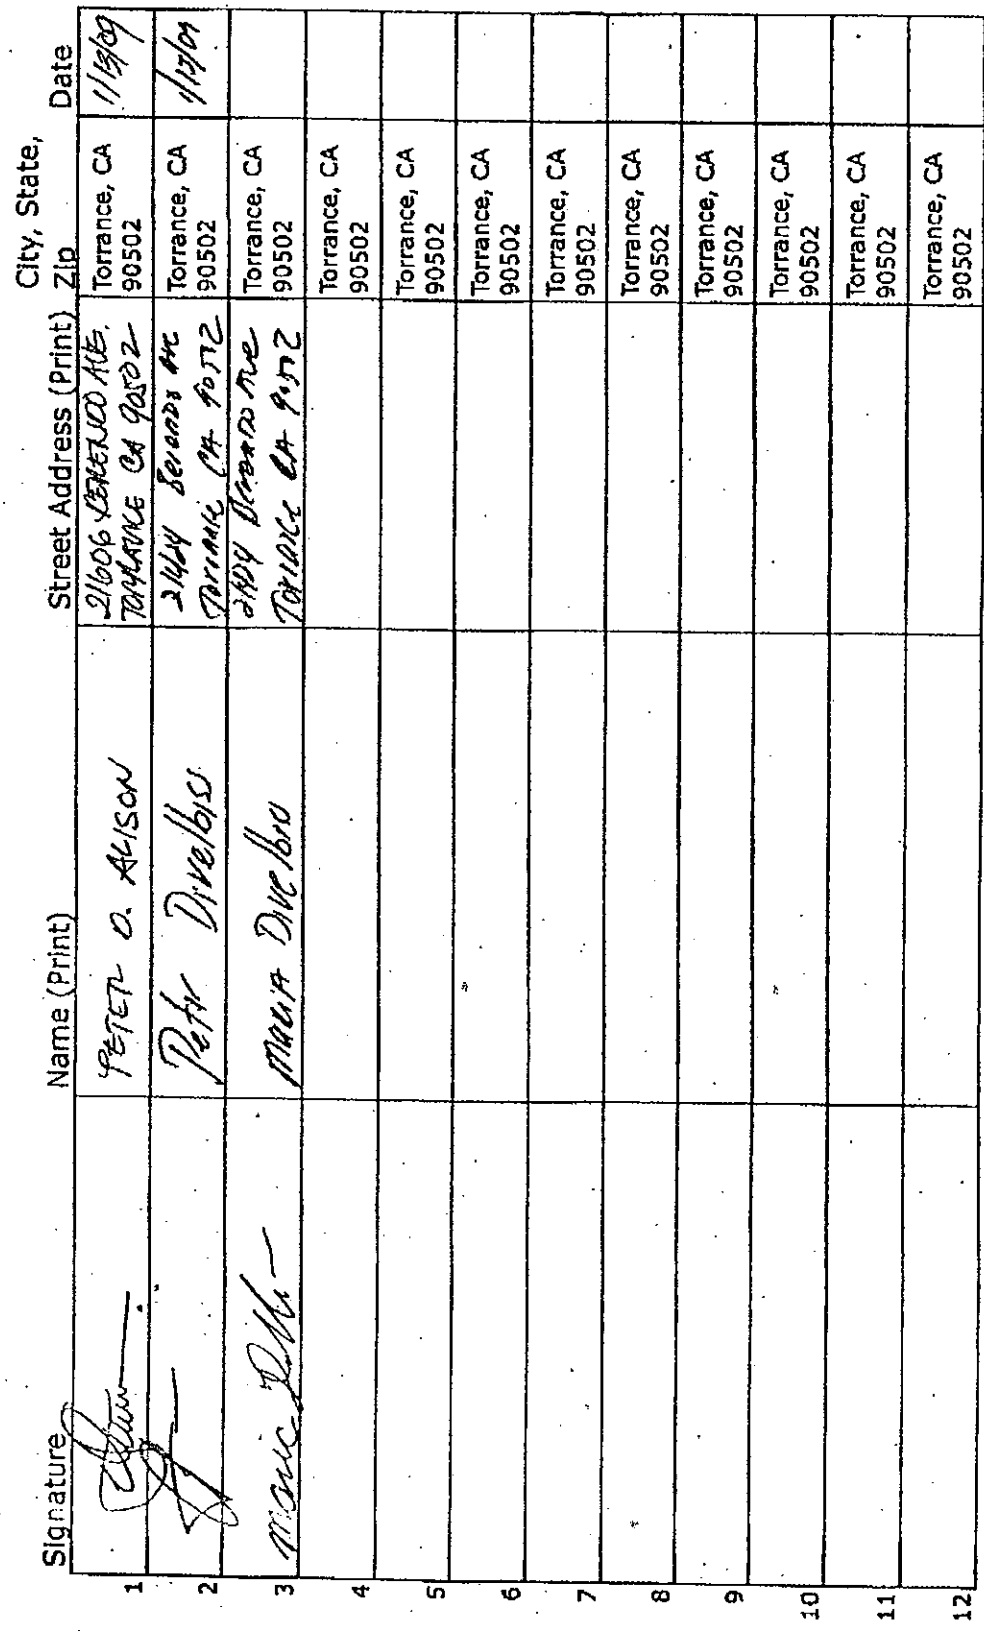 Signature Name (Print) Street Address (Print) City, State, Zip Date
1 PETER O. ALISON 21606 AVE. Torrance, CA 1/13/09
TORRANCE CA 90502 90502
2 Divelbiss Ave Torrance, CA
Torrance CA 90502 90502
3 Maria Ave Torrance, CA
Torrance CA 90502 90502
4 Torrance, CA
90502
5 Torrance, CA
90502
6 Torrance, CA
90502
7 Torrance, CA
90502
8 Torrance, CA
90502
9 Torrance, CA
90502
10 Torrance, CA
90502
11 Torrance, CA
90502
12 Torrance, CA
90502